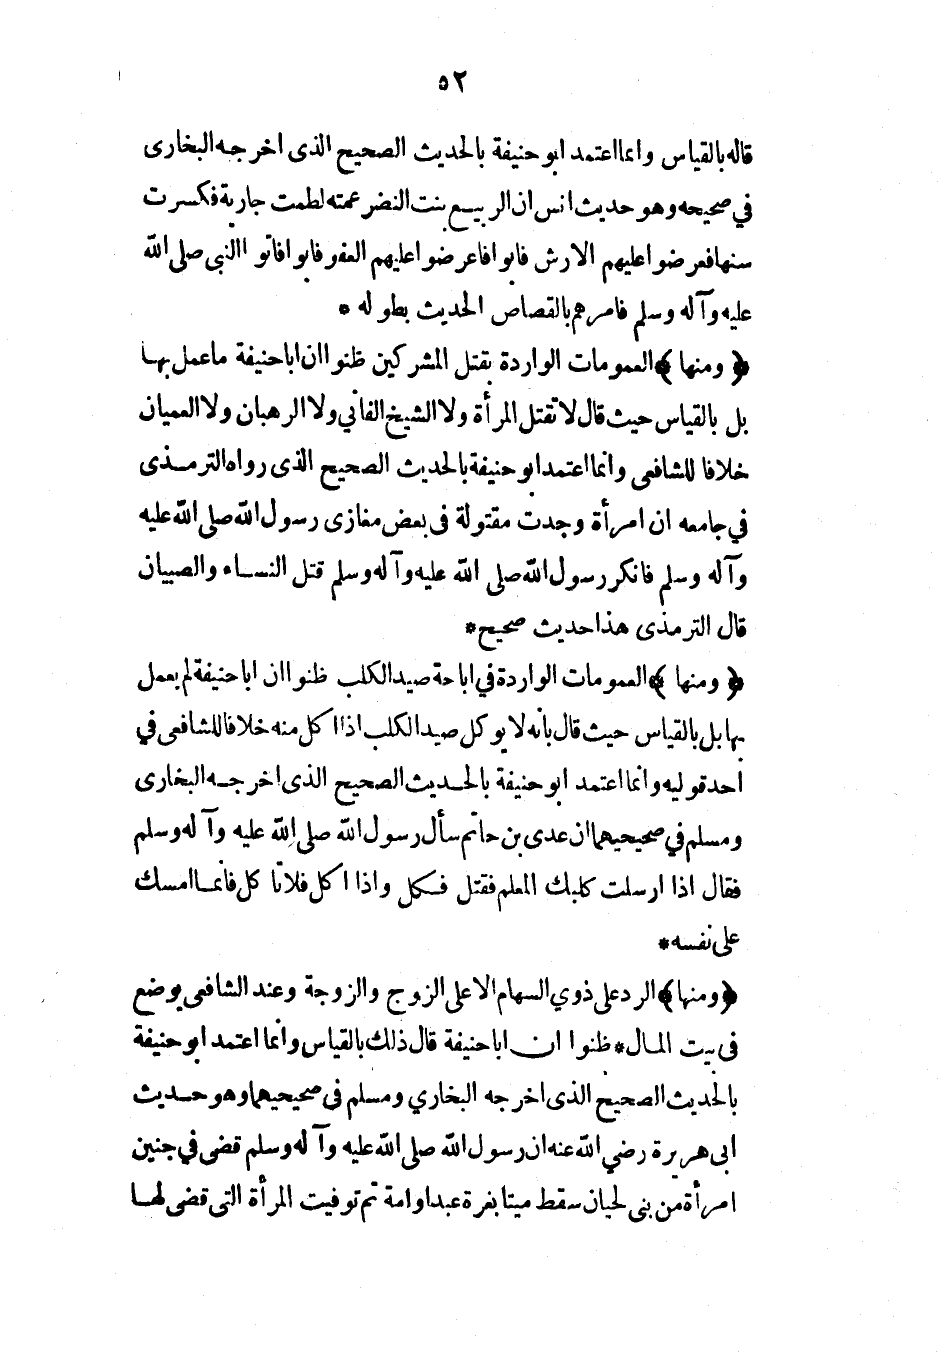 ٥٢
قاله بالقياس وانما اعتمد ابو حنيفة بالحديث الصحيح الذى اخرجه البخارى
في صحيحه وهو حديث انس ان الربيع بنت النضر عمته لطمت جارية فكسرت
سنها فعرضوا عليهم الارش فابوا فاعرضوا عليهم العفو فابوا فاتوا النبى صلى الله
عليه وآله وسلم فامرهم بالقصاص الحديث بطوله *
﴿ ومنها ﴾ العمومات الواردة بقتل المشركين ظنوا ان ابا حنيفة ما عمل بها
بل بالقياس حيث قال لا تقتل المرأة ولا الشيخ الفاني ولا الرهبان ولا العميان
خلافا للشافعى وانما اعتمد ابو حنيفة بالحديث الصحيح الذى رواه الترمذى
في جامعه ان امرأة وجدت مقتولة فى بعض مغازى رسول الله صلى الله عليه
وآله وسلم فانكر رسول الله صلى الله عليه وآله وسلم قتل النساء والصبيان
قال الترمذى هذا حديث صحيح *
﴿ ومنها ﴾ العمومات الواردة في اباحة صيد الكلب ظنوا ان ابا حنيفة لم يعمل
بها بل بالقياس حيث قال بأنه لا يوكل صيد الكلب اذا اكل منه خلافا للشافعى في
احد قوليه وانما اعتمد ابو حنيفة بالحديث الصحيح الذى اخرجه البخارى
ومسلم في صحيحيهما ان عدى بن حاتم سأل رسول الله صلى الله عليه وآله وسلم
فقال اذا ارسلت كلبك المعلم فقتل فكل واذا اكل فلا تاكل فانما امسك
على نفسه *
﴿ ومنها ﴾ الرد على ذوي السهام الا على الزوج والزوجة وعند الشافعى يوضع
فى بيت المال * ظنوا ان ابا حنيفة قال ذلك بالقياس وانما اعتمد ابو حنيفة
بالحديث الصحيح الذى اخرجه البخاري ومسلم فى صحيحيهما وهو حديث
ابى هريرة رضي الله عنه ان رسول الله صلى الله عليه وآله وسلم قضى في جنين
امرأة من بنى لحيان سقط ميتا بغرة عبد او امة ثم توفيت المرأة التى قضى لها